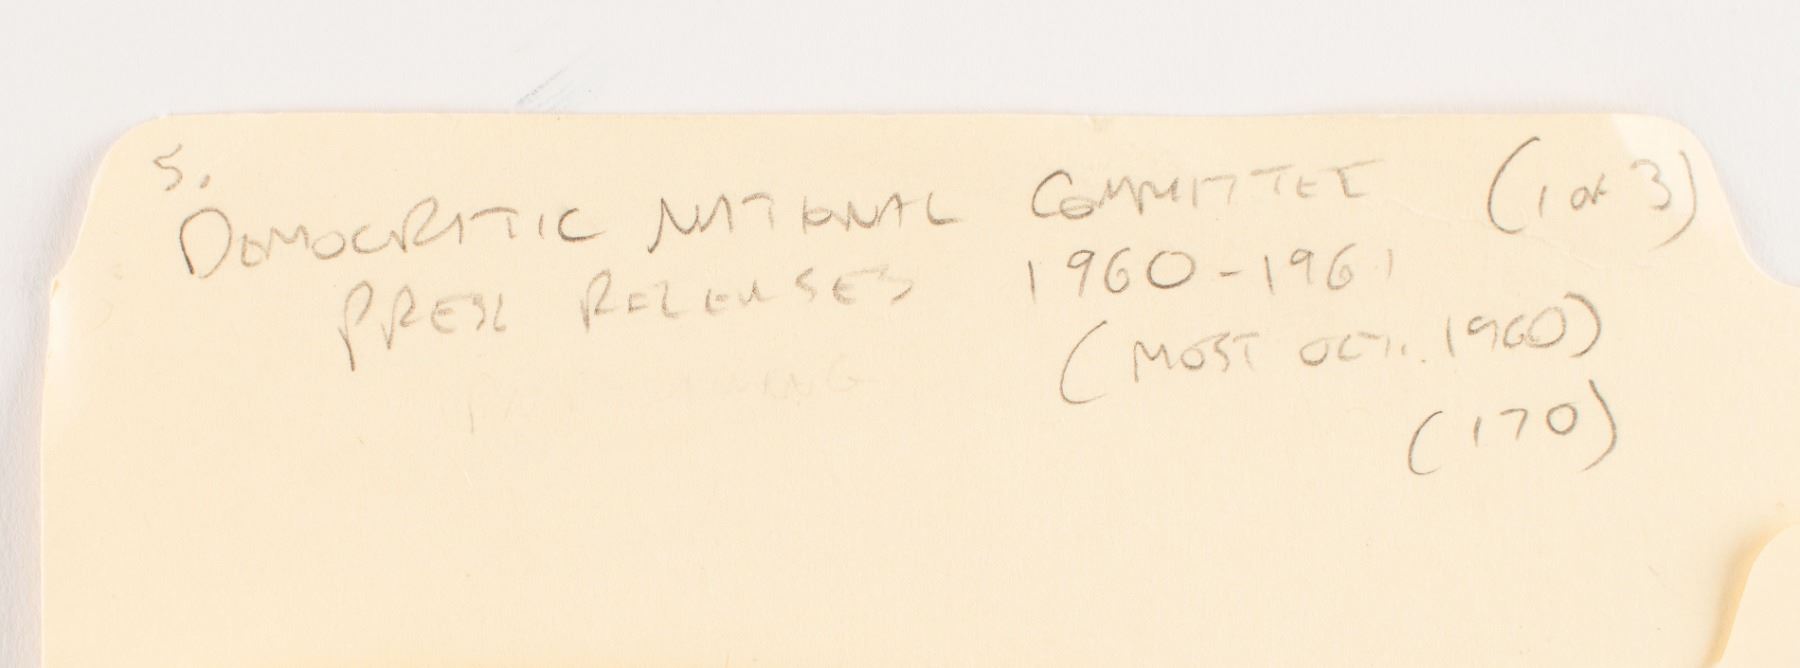 5.
DEMOCRATIC NATIONAL COMMITTEE (1 OF 3)
PRESS RELEASES 1960-1961
(MOST OCT. 1960)
(170)